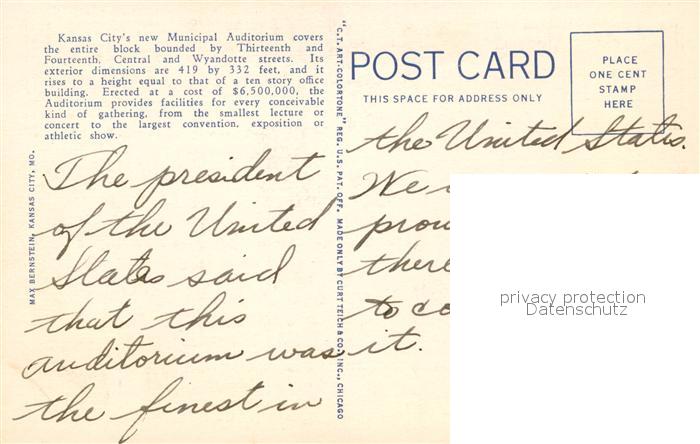 Kansas City's new Municipal Auditorium covers
the entire block bounded by Thirteenth and
Fourteenth, Central and Wyandotte streets. Its
exterior dimensions are 419 by 332 feet, and it
rises to a height equal to that of a ten story office
building. Erected at a cost of $6,500,000, the
Auditorium provides facilities for every conceivable
kind of gathering, from the smallest lecture or
concert to the largest convention, exposition or
athletic show.
MAX BERNSTEIN, KANSAS CITY, MO.
The president
of the United
States said
that this
auditorium was
the finest in
"C.T. ART-COLORTONE" REG. U.S. PAT. OFF. MADE ONLY BY CURT TEICH & CO., INC., CHICAGO
POST CARD
THIS SPACE FOR ADDRESS ONLY
PLACE
ONE CENT
STAMP
HERE
the United States.
We
there
to
it.
privacy protection
Datenschutz